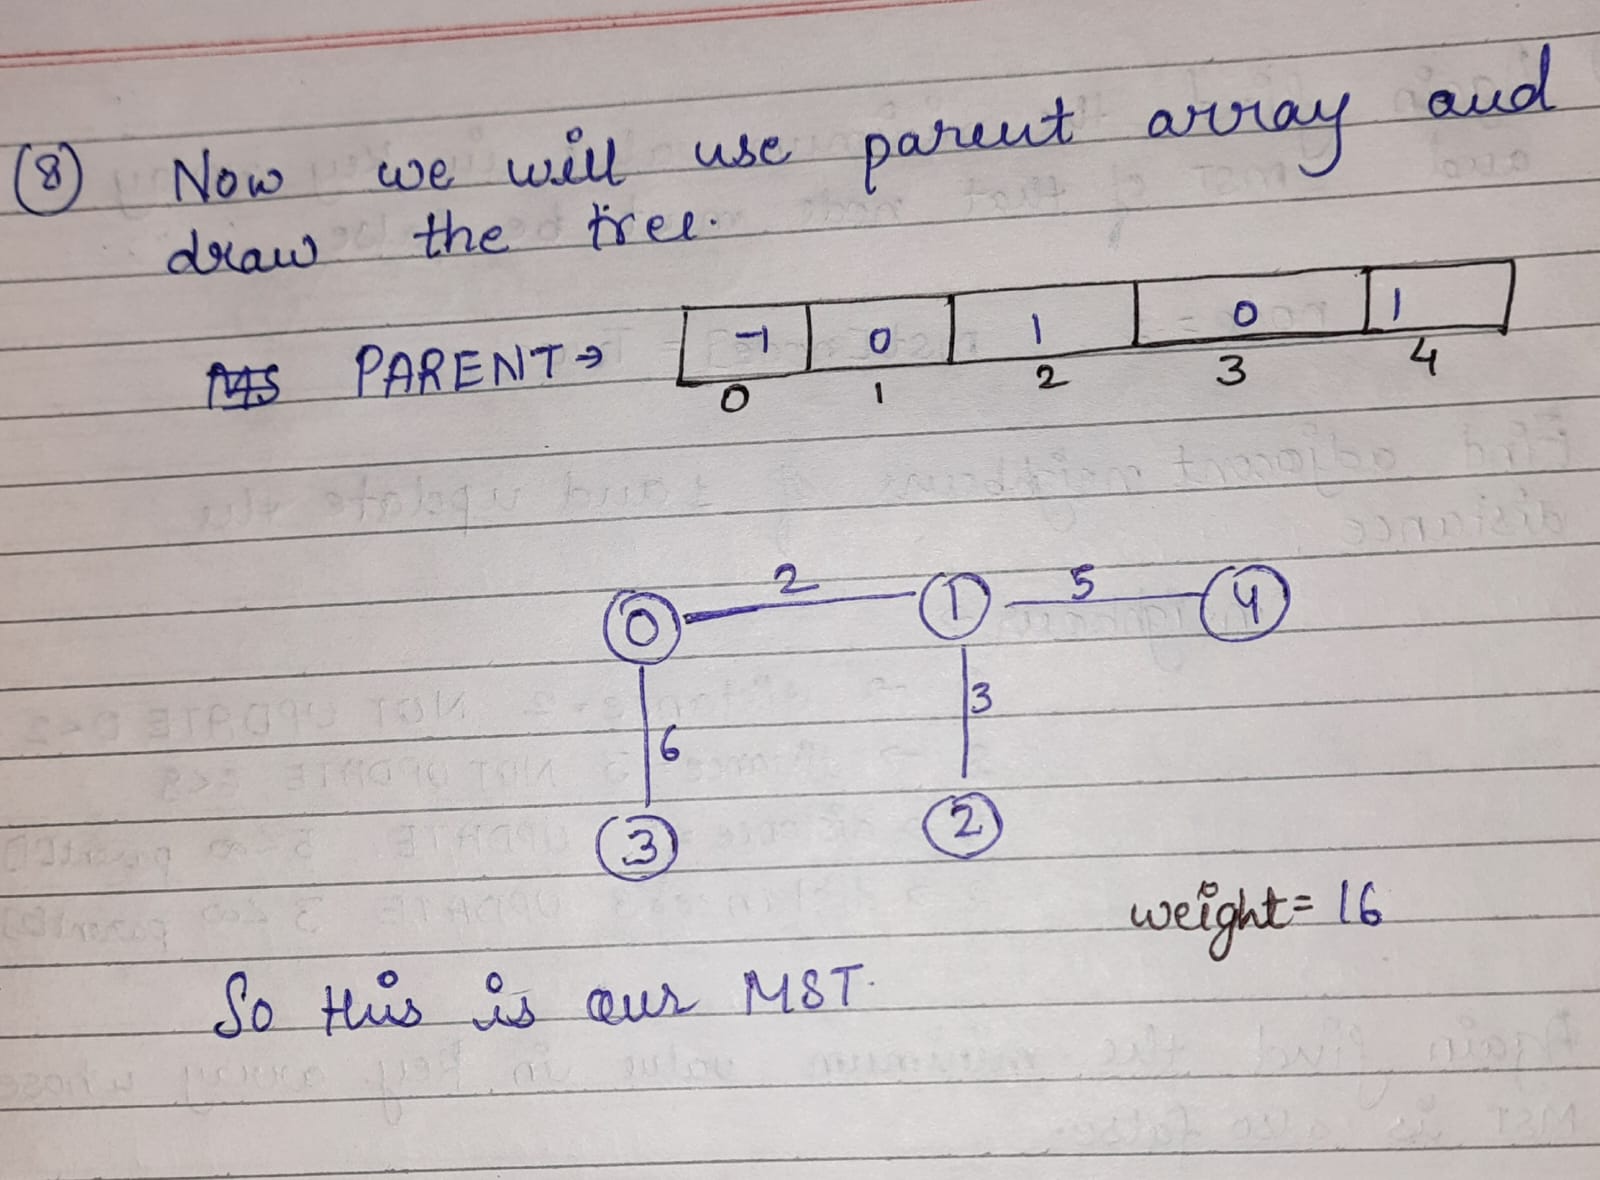 (8) Now we will use parent array and
draw the tree.
PARENT→ -1 0 1 0 1
0 1 2 3 4
0 2 1 5 4
6 3
3 2
weight = 16
So this is our MST.